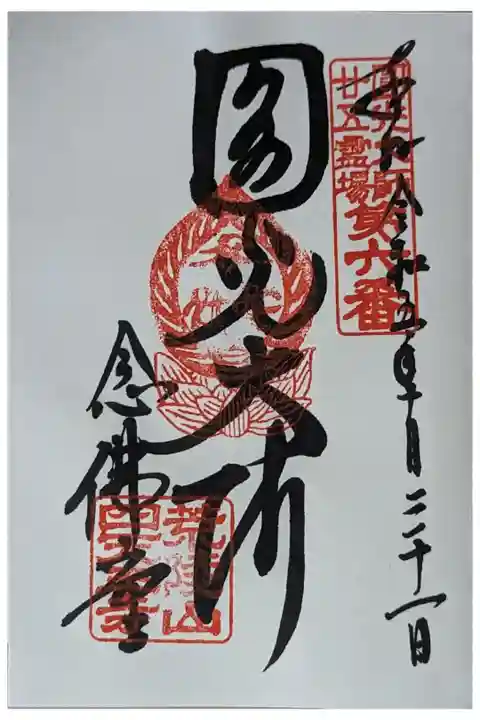 奉拝 令和五年月二十一日
圓光大師
廿五霊場
第六番
圓光大師
念佛堂
荒陵山